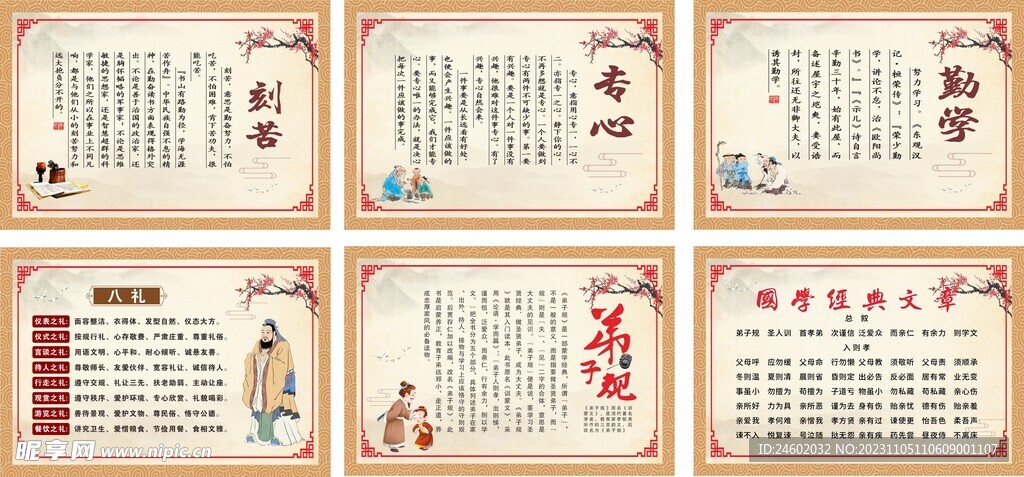 刻苦
刻苦，意思是勤奋努力，不怕
吃苦，不怕困难，肯下苦功夫，很
能吃苦。
『书山有路勤为径，学海无涯
苦作舟』，中华民族自强不息的精
种，在勤奋读书方面表现得格外突
出，不论是善于治国的政治家，还
是胸怀韬略的军事家，不论是思维
敏捷的思想家，还是智慧超群的科
学家，他们之所以在事业上不同凡
响，都是与他们从小的刻苦努力和
远大抱负分不开的。
专心
专心，意指用心专一，一心不
二。亦指专一之心。静下你的心，
不再多想就是专心。一个人要做到
专心有两件不可缺少的事，第一要
有兴趣。要是一个人对一件事没有
兴趣，他很难对这件事专心。有了
兴趣，专心自然会来。
一件事要是从长远看有好处，
也使会产生兴趣。一件应该做的
事，而又能够完成它，我们才能专
心。要专心唯一的办法，就是决心
把每次一件应该做的事完成。
勤学
努力学习。《东观汉
记·桓荣传》：『荣少勤
学，讲论不怠，治《欧阳尚
书》。』『《示儿》诗自言
辛勤三十年，始有此屋，而
备述屋宇之垝奂，妻受诰
封，所往还无非卿大夫，以
诱其勤学。
八礼
仪表之礼：面容整洁、衣得体、发型自然、仪态大方。
仪式之礼：按规行礼、心存敬畏、严肃庄重、尊重礼俗。
言谈之礼：用语文明、心平和、耐心倾听、诚恳友善。
待人之礼：尊敬师长、友爱伙伴、宽容礼让、诚信待人。
行走之礼：遵守交规、礼让三先、扶老助弱、主动让座。
观赏之礼：遵守秩序、爱护环境、专心欣赏、礼貌喝彩。
游览之礼：善待景观、爱护文物、尊民俗、恪守公德。
餐饮之礼：讲究卫生、爱惜粮食、节俭用餐、食相文雅。
弟子规
《弟子规》是一部蒙学经典，所谓『弟子』，
不是一般的意义，而是指要做圣贤弟子，而
『规』则是『夫』、『见』二字的合体，意思是
大丈夫的见识，『弟子规』便是说，要学习圣
贤经典，做圣贤弟子，成为大丈夫，『弟子
规』就是其入门读本。此书原名《训蒙文》，采
用《论语·学而篇》：『弟子入则孝，出则悌，
谨而信，泛爱众，而亲仁，行有余力，则以学
文。』把全书分为五个部分，具体列述弟子在家
、出外、待人、接物与学习上应该恪守的守则规
范。后贾存仁加以改编，改名《弟子规》，此
书是启蒙养正，教育子弟远邪小，走正道，养
成忠厚家风的必备读物。
國學經典文章
总 叙
弟子规 圣人训 首孝弟 次谨信 泛爱众 而亲仁 有余力 则学文
入则孝
父母呼 应勿缓 父母命 行勿懒 父母教 须敬听 父母责 须顺承
冬则温 夏则凊 晨则省 昏则定 出必告 反必面 居有常 业无变
事虽小 勿擅为 苟擅为 子道亏 物虽小 勿私藏 苟私藏 亲心伤
亲所好 力为具 亲所恶 谨为去 身有伤 贻亲忧 德有伤 贻亲羞
亲爱我 孝何难 亲憎我 孝方贤 亲有过 谏使更 怡吾色 柔吾声
谏不入 悦复谏 号泣随 挞无怨 亲有疾 药先尝 昼夜侍 不离床
昵享网 www.nipic.cn
ID:24602032 NO:20231105110609001107